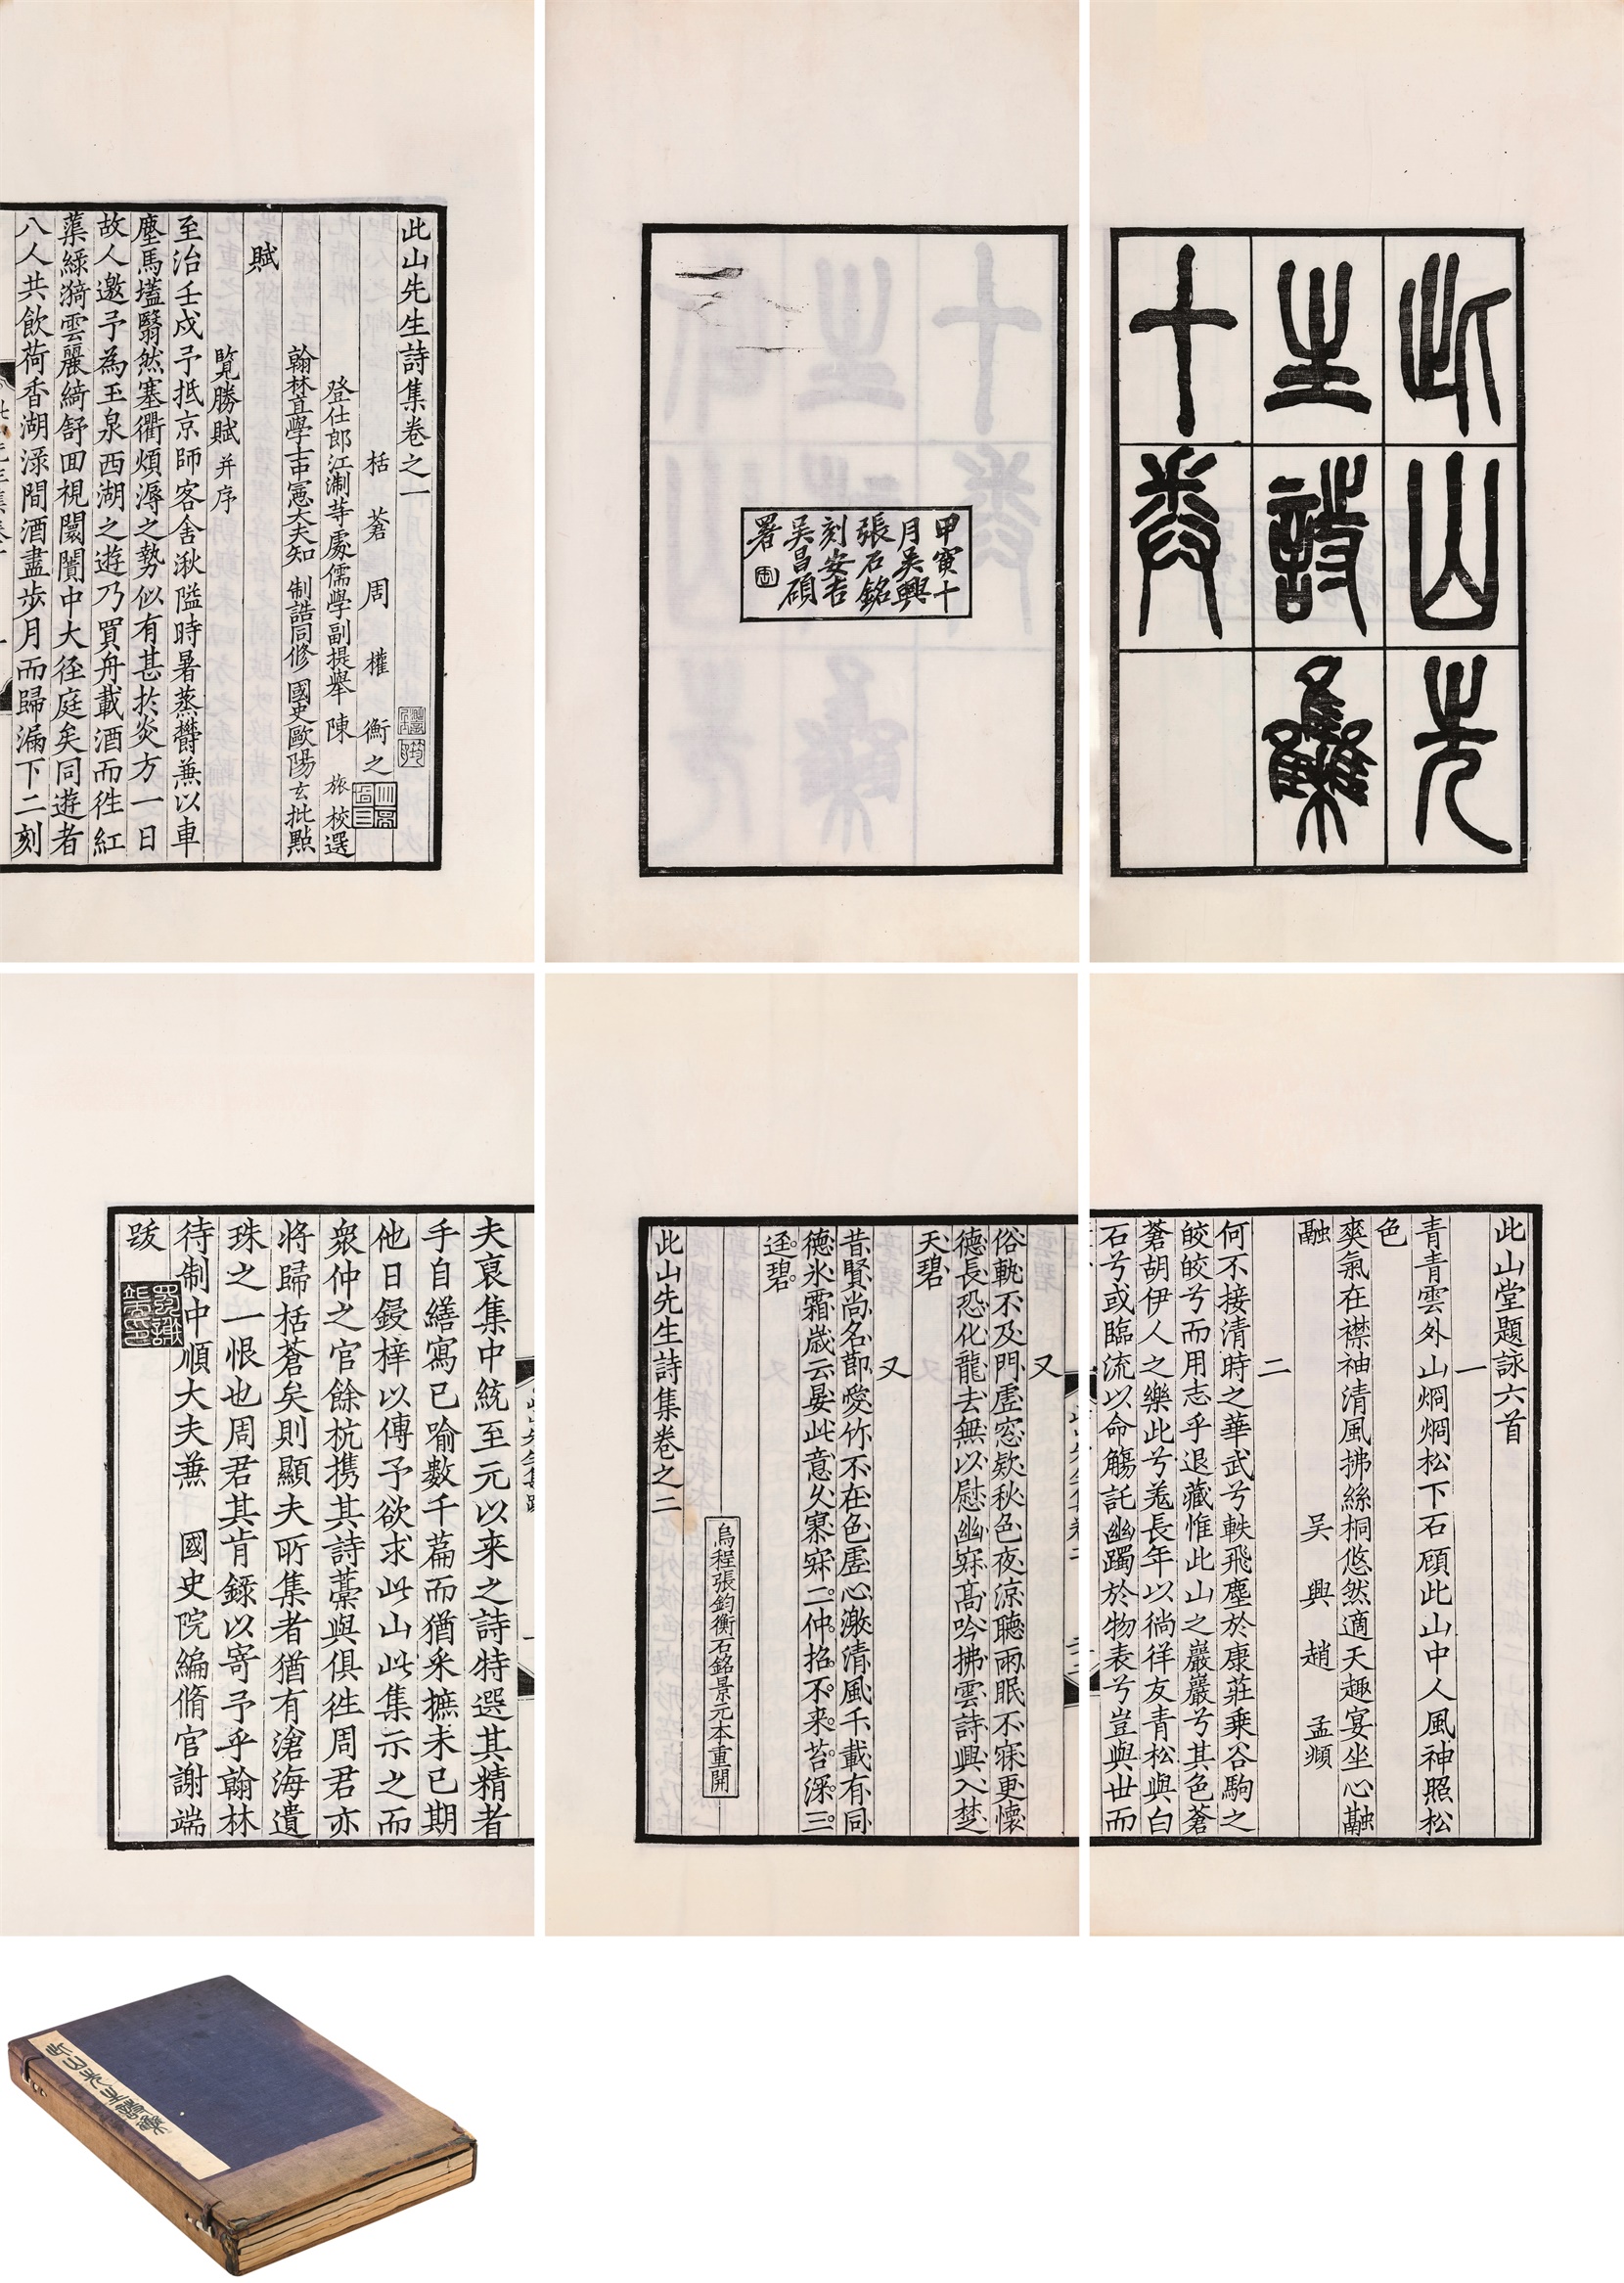 此山先
生詩集
十卷
甲寅十
月吳興
張石銘
刻安吉
吳昌碩
署
此山先生詩集卷之一
栝蒼周權衡之
登仕郎江淛等處儒學副提舉陳旅校選
翰林直學士中憲大夫知制誥同修國史歐陽玄批點
賦
覧勝賦并序
至治壬戍予抵京師客舍湫隘時暑蒸欝蕪以車
塵馬壒翳然塞衢煩溽之勢似有甚於炎方一日
故人邀予為玉泉西湖之遊乃買舟載酒而徃紅
蕖緑漪雲麗綺舒回視闤闠中大径庭矣同遊者
八人共飲荷香湖渌間酒盡歩月而歸漏下二刻
此山堂題詠六首
一
青青雲外山烱烱松下石頋此山中人風神照松
色
爽氣在襟袖清風拂絲桐悠然適天趣宴坐心融
融
吴興趙孟頫
二
何不接清時之華武兮軼飛塵於康莊乗谷駒之
皎皎兮而用志乎退藏惟此山之巖巖兮其色蒼
蒼胡伊人之樂此兮羗長年以徜徉友青松與白
石兮或臨流以命觴託幽躅於物表兮豈與世而
又
俗軌不及門虛窓欵秋色夜涼聽雨眠不寐更懷
德長恐化龍去無以慰幽寂髙吟拂雲詩興入楚
天碧
又
昔賢尚名節愛竹不在色虛心激清風千載有同
德氷霜歳云晏此意久寥寂二仲招不来苔深三
逕碧
烏程張鈞衡石銘景元本重開
此山先生詩集卷之二
夫裒集中統至元以来之詩特選其精者
手自繕寫已喻數千萹而猶采摭未已期
他日鋟梓以傳予欲求此山此集示之而
衆仲之官餘杭携其詩藁與俱徃周君亦
将歸栝蒼矣則顯夫所集者猶有滄海遺
珠之一恨也周君其肯録以寄予乎翰林
待制中順大夫蕪國史院編脩官謝端
跋
此山先生詩集